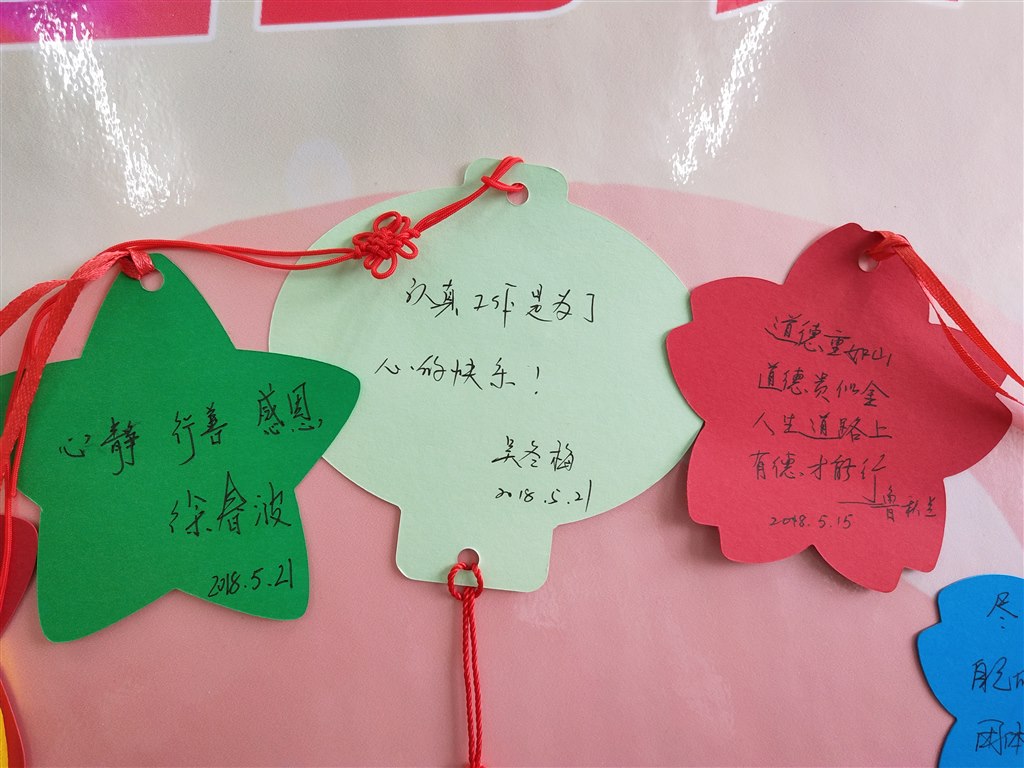 心静 行善 感恩
徐春波
2018.5.21
认真工作是为了
心的快乐！
吴冬梅
2018.5.21
道德重如山
道德贵似金
人生道路上
有德.才能行
鲁秋兰
2018.5.15
尽
能
团体